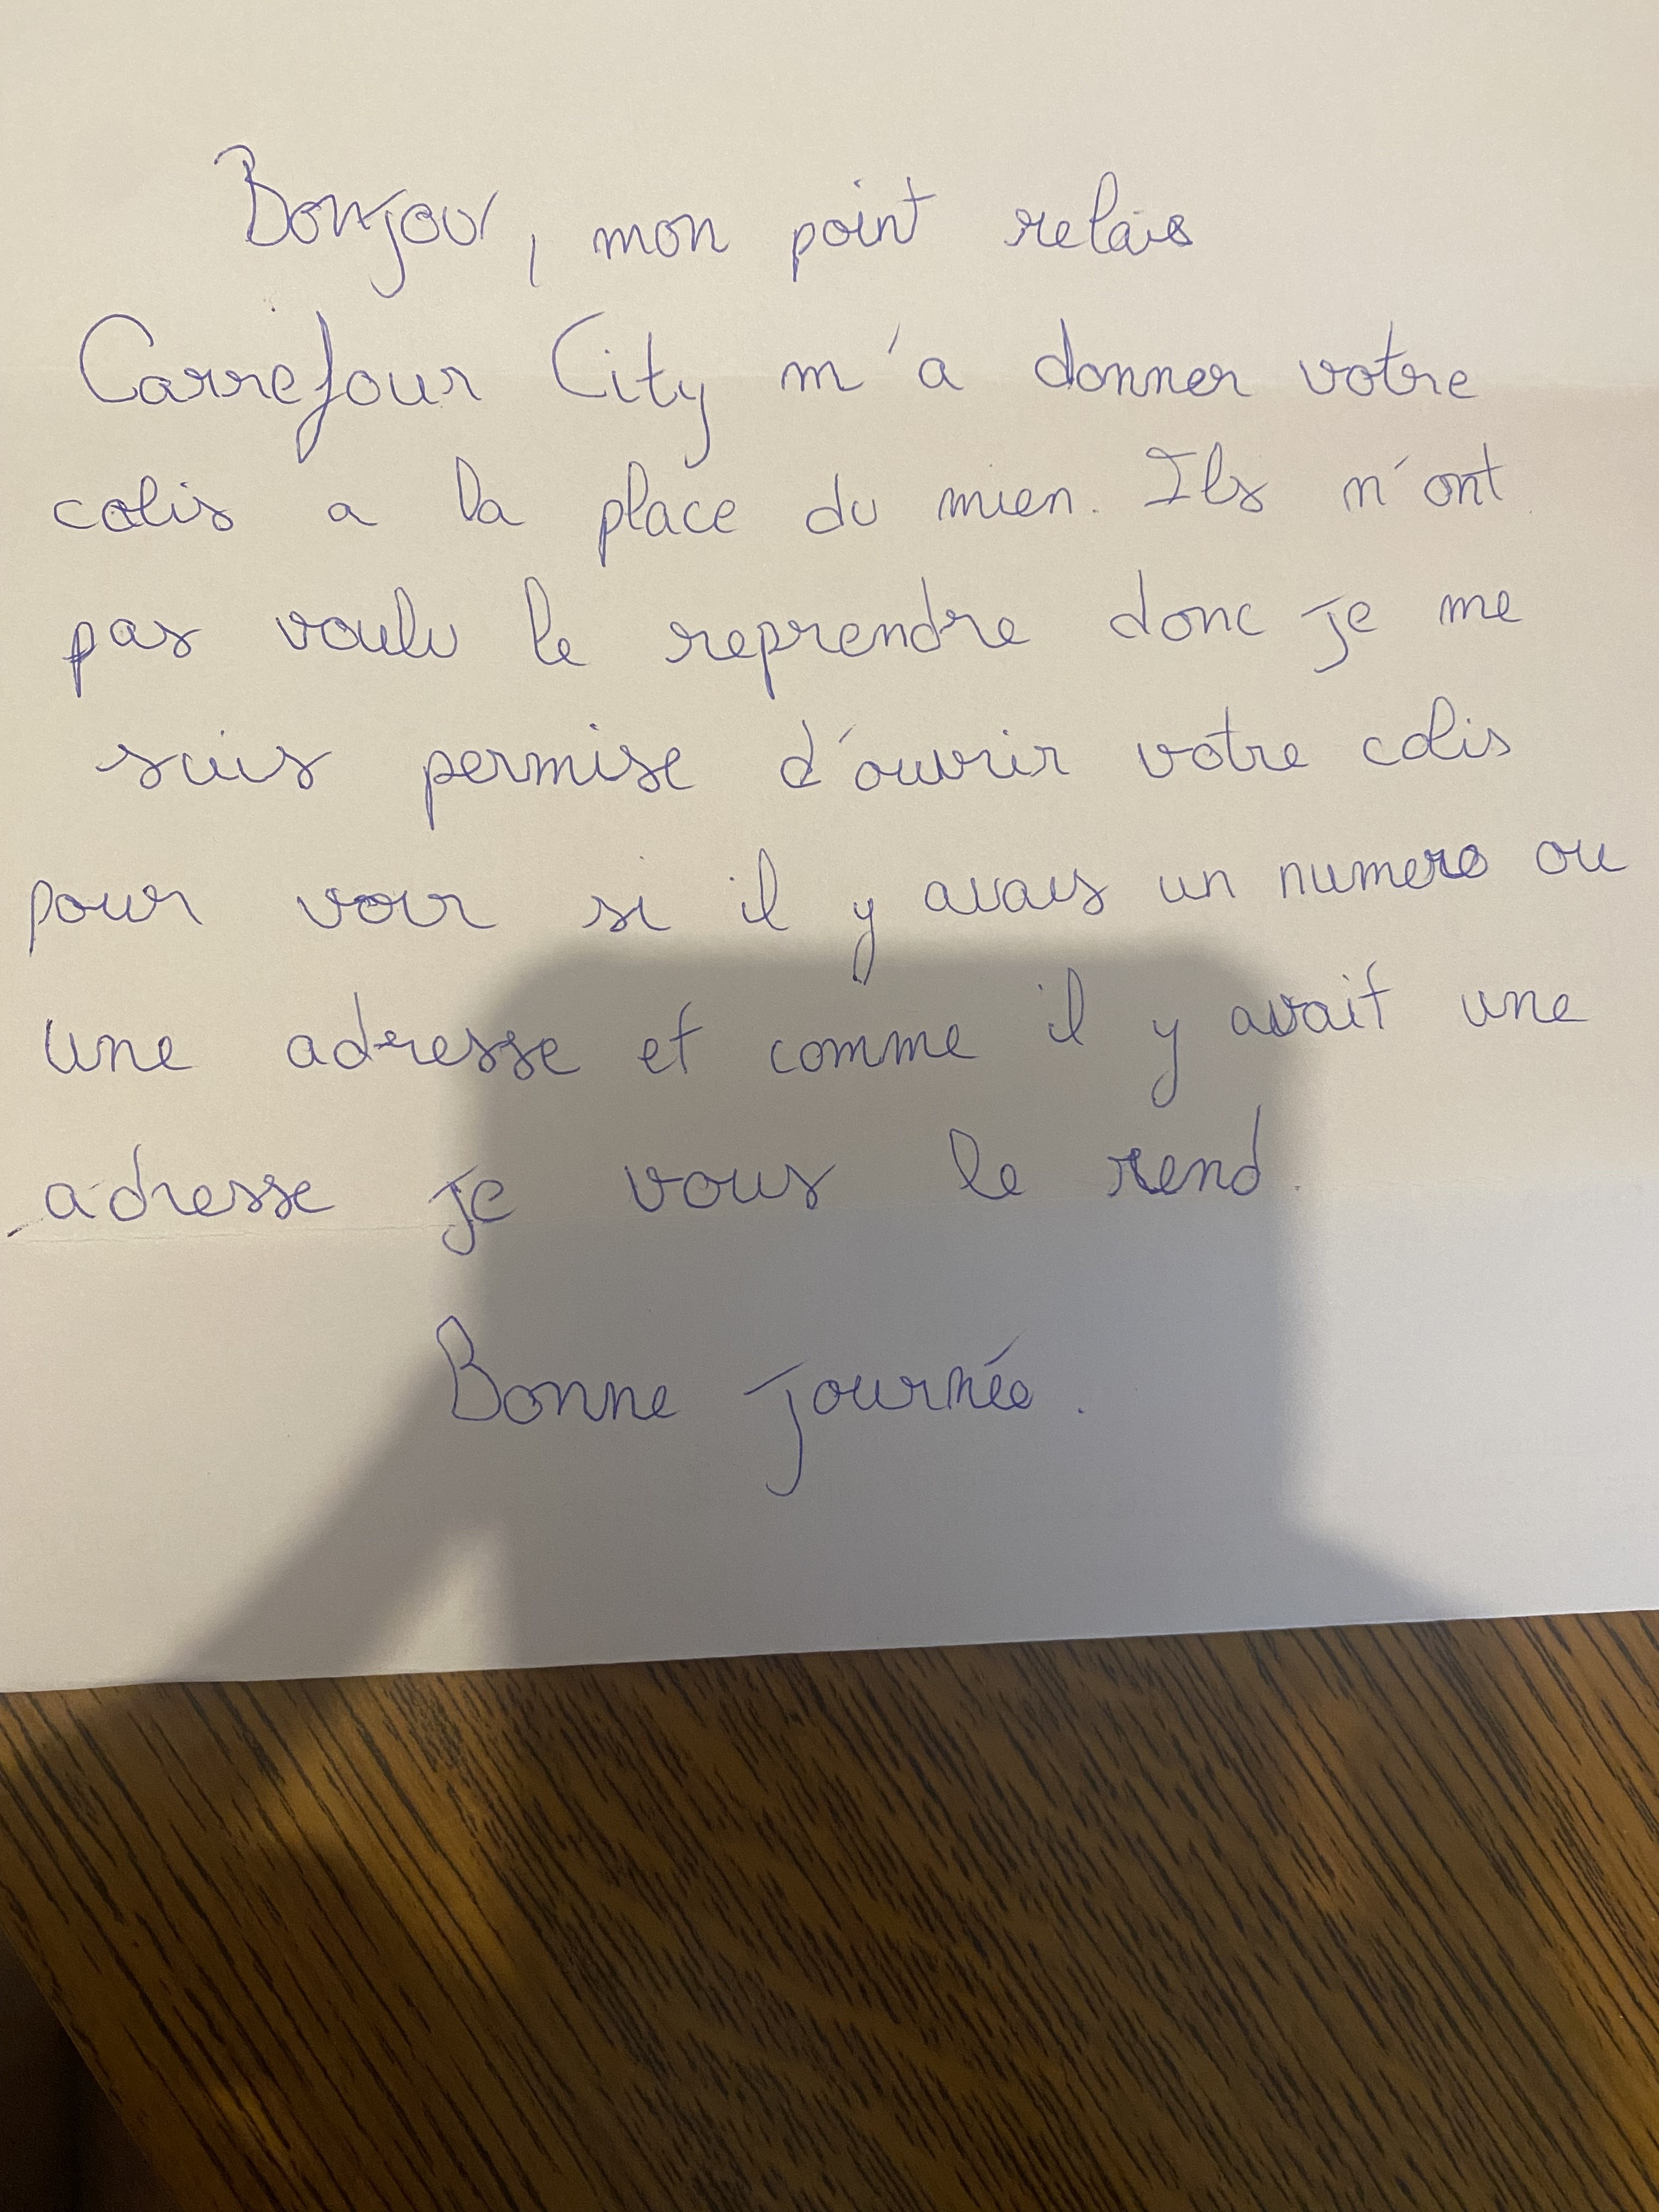 Bonjour, mon point relais
Carrefour City m'a donner votre
colis a la place du mien. Ils n'ont
pas voulu le reprendre donc je me
suis permise d'ouvrir votre colis
pour voir si il y avais un numero ou
une adresse et comme il y avait une
adresse je vous le rend.
Bonne journée.